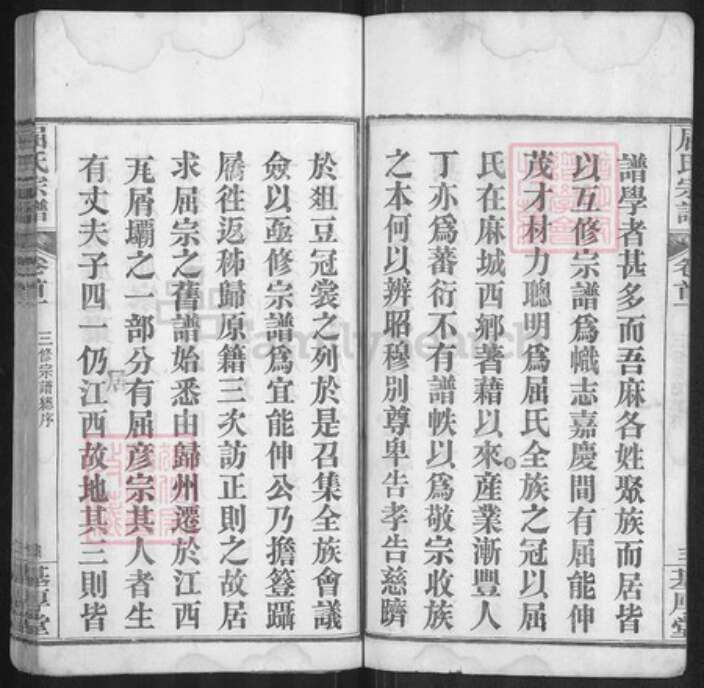 屈氏宗譜
卷首一
基厚堂
譜學者甚多而吾麻各姓聚族而居皆
以互修宗譜爲幟志嘉慶間有屈能伸
茂才材力聰明爲屈氏全族之冠以屈
氏在麻城西鄉著藉以來產業漸豐人
丁亦爲蕃衍不有譜帙以爲敬宗收族
之本何以辨昭穆別尊卑告孝告慈躋
於俎豆冠裳之列於是召集全族會議
僉以亟修宗譜爲宜能伸公乃擔簦躡
屩徃返秭歸原籍三次訪正則之故居
求屈宗之舊譜始悉由歸州遷於江西
兎屑壩之一部分有屈彦宗其人者生
有丈夫子四一仍江西故地其三則皆
屈氏宗譜
卷首一
三修宗譜總序
基厚堂
FamilySearch